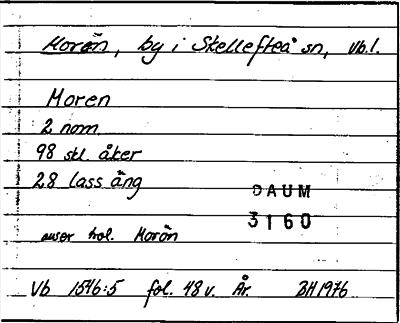 Morön, by i Skellefteå sn, Vb.l.
Moren
2 nom.
98 skl. åker
28 lass äng
DAUM
3160
avser trol. Morön
Vb 1546:5 fol. 48 v. År. BH 1976